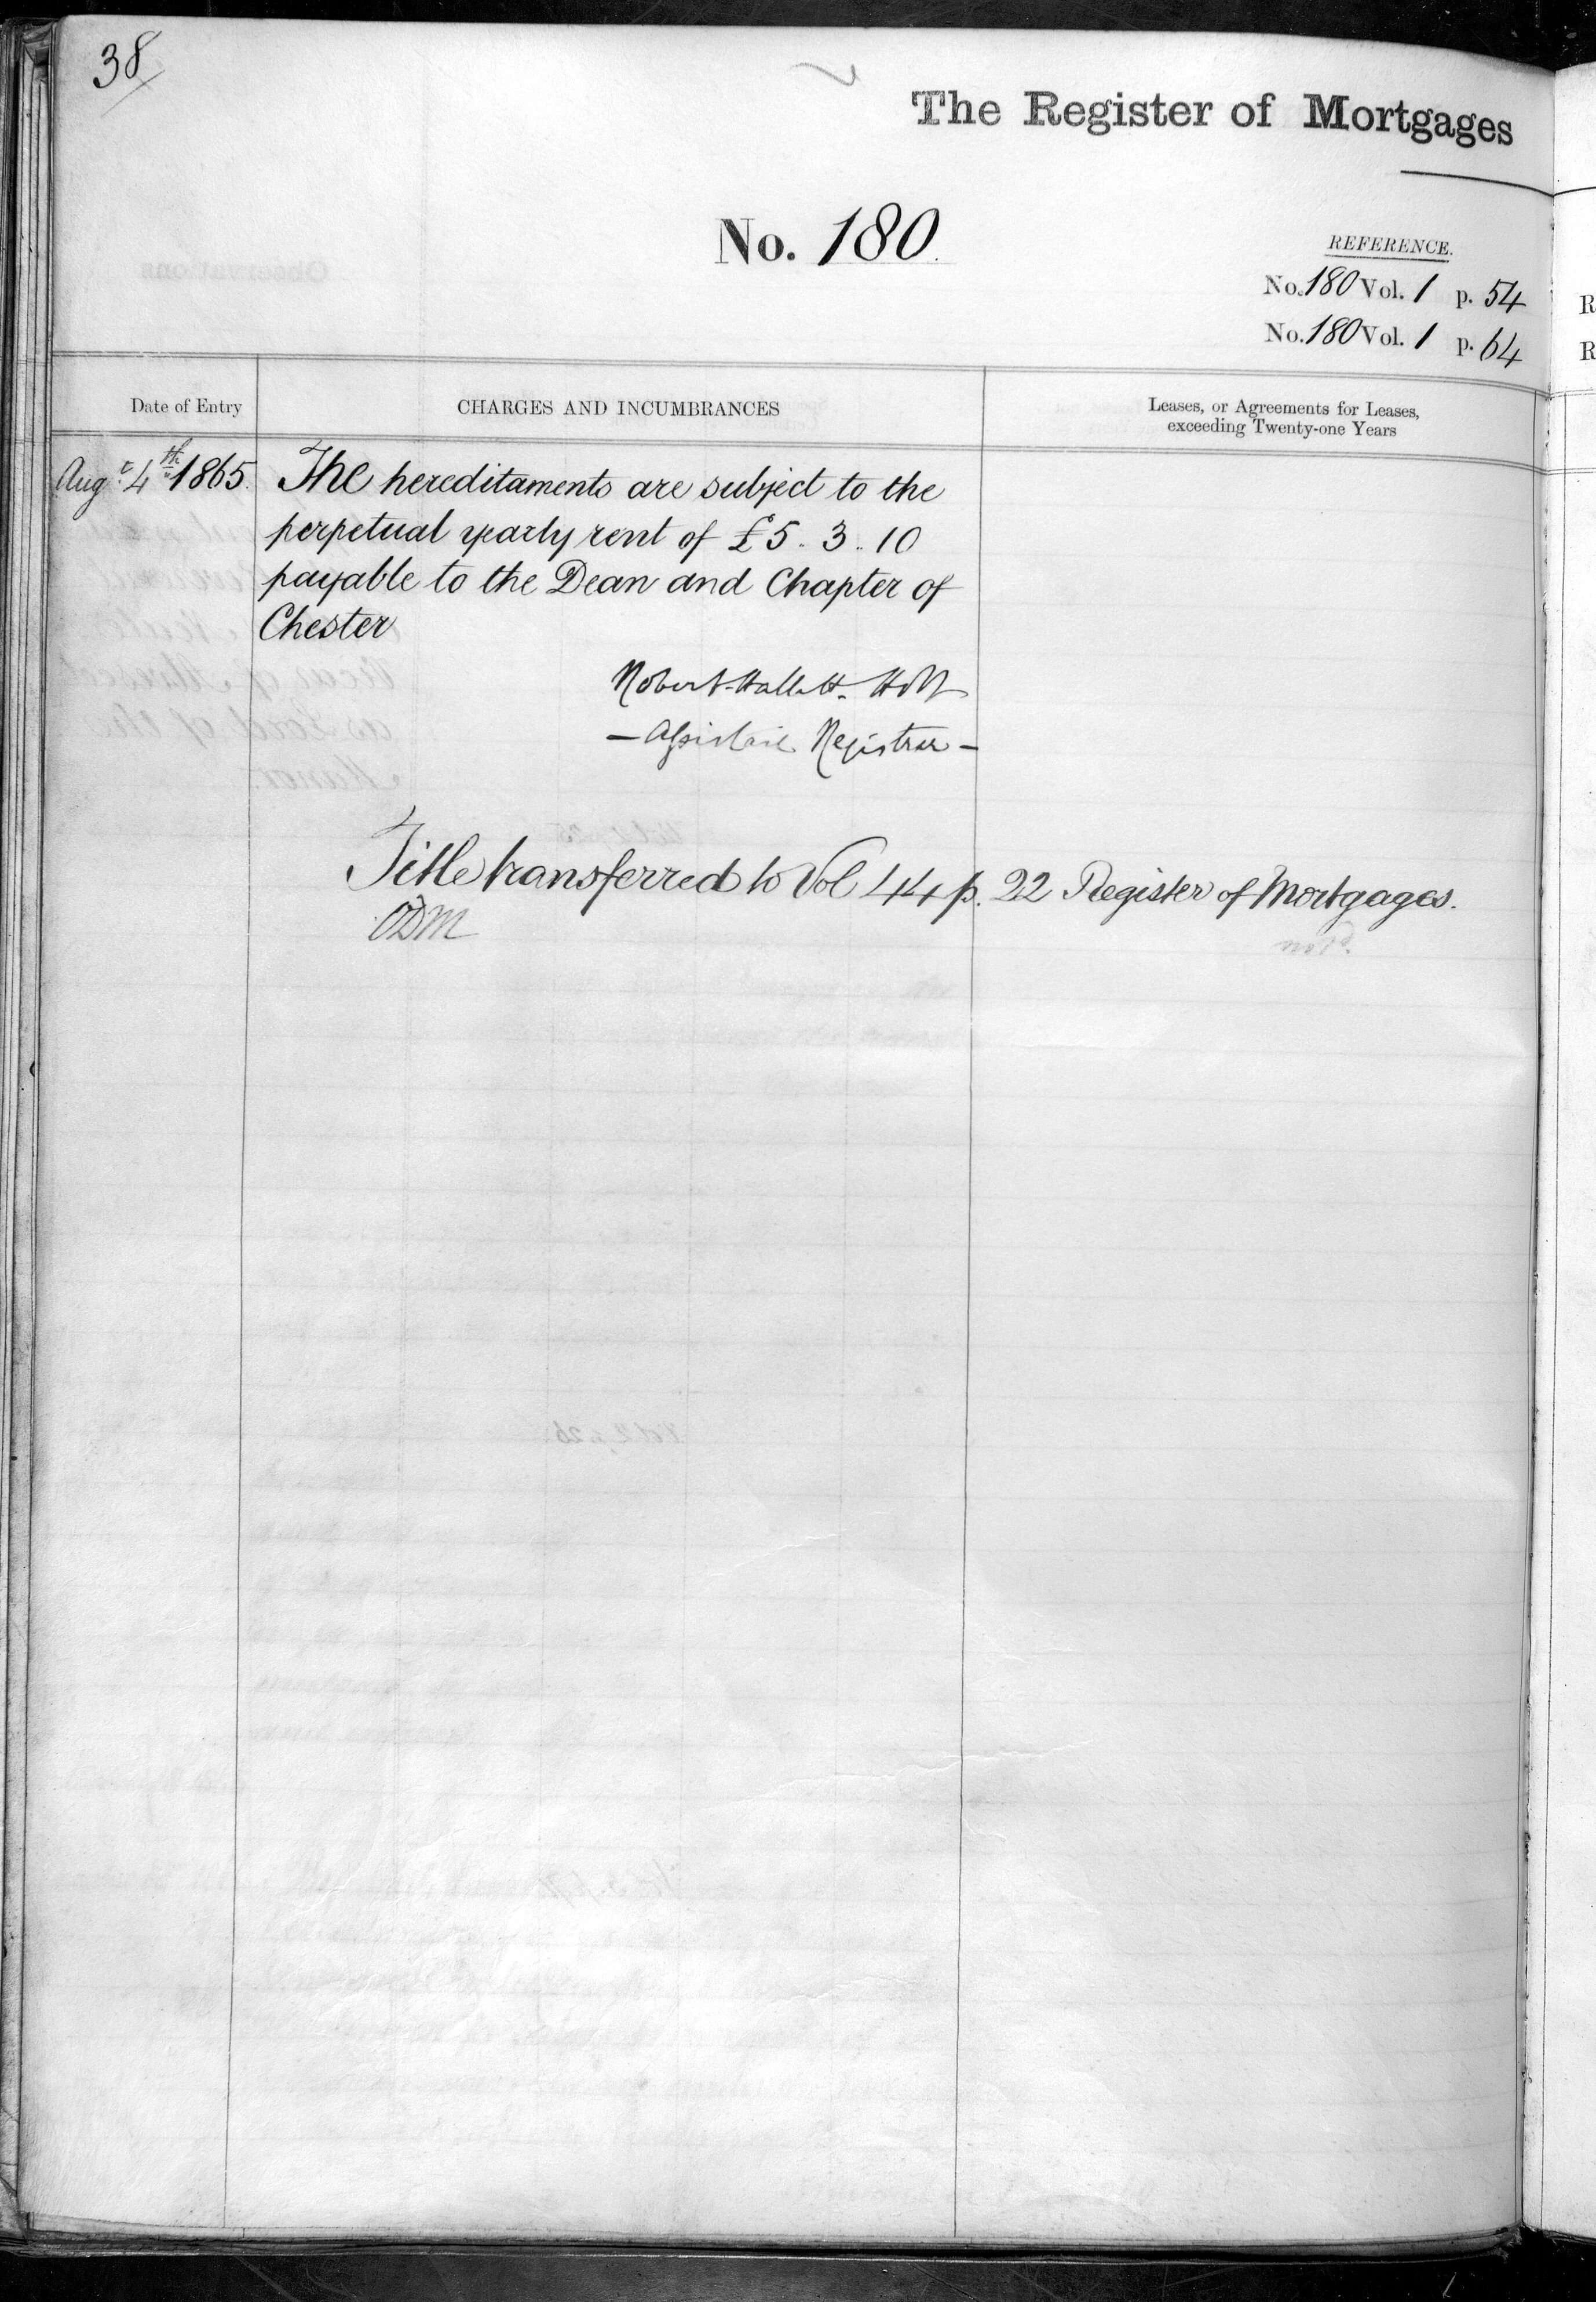 38
The Register of Mortgages
No. 180
REFERENCE.
No. 180 Vol. 1 p. 54
No. 180 Vol. 1 p. 64
Date of Entry
CHARGES AND INCUMBRANCES
Leases, or Agreements for Leases,
exceeding Twenty-one Years
Augt. 4th 1865. The hereditaments are subject to the
perpetual yearly rent of £5. 3. 10
payable to the Dean and Chapter of
Chester
Robert Hallett Holt
— Assistant Registrar —
Title transferred to Vol 44 p. 22 Register of Mortgages.
ODM